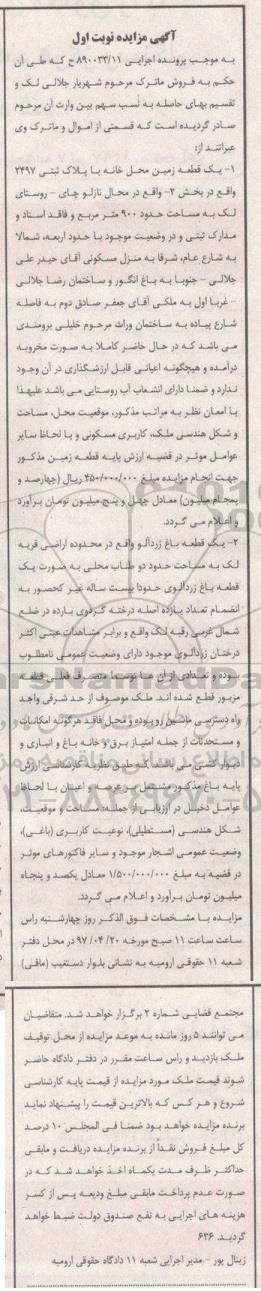 آگهی مزایده نوبت اول
به موجب پرونده اجرایی ۸۹۰۰۳۳/۱۱ ح که طی آن
حکم به فروش ماترک مرحوم شهریار جلالی لک و
تقسیم بهای حاصله به نسب سهم بین وراث آن مرحوم
صادر گردیده است که قسمتی از اموال و ماترک وی
عبراتند از:
۱- یک قطعه زمین محل خانه با پلاک ثبتی ۲۴۹۷
واقع در بخش ۲- واقع در محال نازلو چای - روستای
لک به مساحت حدود ۹۰۰ متر مربع و فاقد اسناد و
مدارک ثبتی و در وضعیت موجود با حدود اربعه، شمالا
به شارع عام، شرقا به منزل مسکونی آقای حیدر علی
جلالی - جنوبا به باغ انگور و ساختمان رضا جلالی
- غربا اول به ملکی آقای جعفر صادق دوم به فاصله
شارع پیاده به ساختمان وراث مرحوم خلیلی برومندی
می باشد که در حال حاضر کاملا به صورت مخروبه
درآمده و هیچگونه اعیانی قابل ارزشگذاری در آن وجود
ندارد و ضمنا دارای انشعاب آب روستایی می باشد علیهذا
با امعان نظر به مراتب مذکور، موقعیت محل، مساحت
و شکل هندسی ملک، کاربری مسکونی و با لحاظ سایر
عوامل موثر در قضیه ارزش پایه قطعه زمین مذکور
جهت انجام مزایده مبلغ ۴۵۰/۰۰۰/۰۰۰ ریال (چهارصد و
پنجاه میلیون) معادل چهل و پنج میلیون تومان برآورد
و اعلام می گردد.
۲- یک قطعه باغ زردآلو واقع در محدوده اراضی قریه
لک به مساحت حدود دو طناب محلی به صورت یک
قطعه باغ زردآلوی حدودا بیست ساله غیر کحصور به
انضمام تعداد یازده اصله درخته گردوی بارده در ضلع
شمال غربی رقبه لک واقع و برابر مشاهدات عینی اکثر
درختان زردآلوی موجود دارای وضعیت عمومی نامطلوب
بوده و تعدادی از آن ها توسط متصرف فعلی قطعه
مزبور قطع شده اند. ملک موصوف از حد شرقی واجد
راه دسترسی ماشین رو بوده و محل فاقد هرگونه امکانات
و مستحدثات از جمله امتیاز برق و خانه باغ و انباری و
دیوار کشی می باشد که طبق نظریه کارشناسی ارزش
پایه باغ مذکور مشتمل بر عرصه و اعیان با لحاظ
عوامل دخیل در ارزیابی از جمله: مساحت و موقعیت،
شکل هندسی (مستطیلی)، نوعیت کاربری (باغی)،
وضعیت عمومی اشجار موجود و سایر فاکتورهای موثر
در قضیه به مبلغ ۱/۵۰۰/۰۰۰/۰۰۰ معادل یکصد و پنجاه
میلیون تومان برآورد و اعلام می گردد.
مزایده با مشخصات فوق الذکر روز چهارشنبه راس
ساعت ساعت ۱۱ صبح مورخه ۲۰/ ۰۴/ ۹۷ در محل دفتر
شعبه ۱۱ حقوقی ارومیه به نشانی بلوار دستغیب (مافی)
مجتمع قضایی شماره ۲ برگزار خواهد شد. متقاضیان
می توانند ۵ روز مانده به موعد مزایده از محل توقیف
ملک بازدید و راس ساعت مقرر در دفتر دادگاه حاضر
شوند قیمت ملک مورد مزایده از قیمت پایه کارشناسی
شروع و هر کس که بالاترین قیمت را پیشنهاد نماید
برنده مزایده خواهد بود ضمنا فی المجلس ۱۰ درصد
کل مبلغ فروش نقداً از برنده مزایده دریافت و مابقی
حداکثر ظرف مدت یکماه اخذ خواهد شد که در
صورت عدم پرداخت مابقی مبلغ ودیعه پس از کسر
هزینه های اجرایی به نفع صندوق دولت ضبط خواهد
گردید. ۶۳۶
زینال پور - مدیر اجرایی شعبه ۱۱ دادگاه حقوقی ارومیه